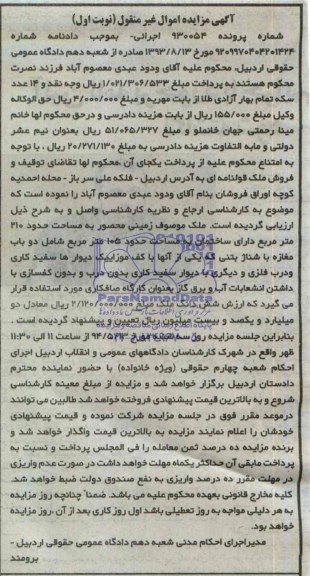 آگهی مزایده اموال غیر منقول (نوبت اول)
شماره پرونده ۹۳۰۰۵۴ اجرائی- بموجب دادنامه شماره
۹۲۰۹۹۷۰۴۰۴۲۰۱۴۲۴ مورخ ۱۳۹۳/۸/۱۳ صادره از شعبه دهم دادگاه عمومی
حقوقی اردبیل، محکوم علیه آقای ودود عبدی معصوم آباد فرزند نصرت
محکوم هستند به پرداخت مبلغ ۱/۰۲۱/۳۰۶/۵۳۳ ریال وجه نقد و ۱۴ عدد
سکه تمام بهار آزادی طلا از بابت مهریه و مبلغ ۴/۰۰۰/۰۰۰ ریال حق الوکاله
وکیل مبلغ ۱۵۵/۰۰۰ ریال از بابت هزینه دادرسی و درحق محکوم لها خانم
مینا رحمتی جهان خانملو و مبلغ ۵۱/۰۶۵/۳۲۷ ریال بعنوان نیم عشر
دولتی و مابه التفاوت هزینه دادرسی به مبلغ ۲۰/۲۷۱/۱۳۰ ریال ، با توجه
به امتناع محکوم علیه از پرداخت یکجای آن ،محکوم لها تقاضای توقیف و
فروش ملک قولنامه ای به آدرس اردبیل - فلکه علی سر باز - محله احمدیه
کوچه اوراق فروشان بنام آقای ودود عبدی معصوم آباد را نموده است که
موضوع به کارشناسی ارجاع و نظریه کارشناسی واصل و به شرح ذیل
ارزیابی گردیده است. ملک موصوف زمینی محصور به مساحت حدود ۲۱۰
متر مربع دارای ساختمانی به مساحت حدود ۱۰۵ متر مربع شامل دو باب
مغازه با شناژ بتنی که یکی از آنها با کف موزاییک دیوار ها سفید کاری
ودرب فلزی و دیگری با دیوار سفید کاری بدون درب و بدون کفسازی با
داشتن انشعابات آب و برق گاز بعنوان کارگاه صافکاری مورد استفاده قرار
می گیرد که ارزش شش دانگ ملک مبلغ ۲/۱۲۰/۰۰۰/۰۰۰ ریال معادل دو
میلیارد و یکصد و بیست میلیون ریال تعیین و پیشنهاد گردیده است .
بنابراین جلسه مزایده روز سه ۹۴/۵/۱۳ از ساعت ۱۱ الی ۱۱:۳۰
ظهر واقع در شهرک کارشناسان دادگاههای عمومی و انقلاب اردبیل اجرای
احکام شعبه چهارم حقوقی (ویژه خانواده) با حضور نماینده محترم
دادستان اردبیل برگزار خواهد شد و مزایده از مبلغ معینه کارشناسی
شروع و به بالاترین قیمت پیشنهادی فروخته خواهد شد طالبین می توانند
درموعد مقرر فوق در جلسه مزایده شرکت نموده و قیمت پیشنهادی
خودشان را اعلام نمایند مزایده به بالاترین قیمت واگذار خواهد شد و
برنده مزایده ده درصد ثمن معامله را فی المجلس پرداخت و نسبت به
پرداخت مابقی آن حداکثر یکماه مهلت خواهد داشت در صورت عدم واریزی
در مهلت مقرر ده درصد واریزی به نفع صندوق دولت ضبط خواهد شد.
کلیه مخارج قانونی بعهده محکوم علیه می باشد. ضمنا چنانچه روز مزایده
به هر دلیلی مواجه به روز تعطیلی باشد اول روز کاری بعد از آن ،روز مزایده
خواهد بود.
مدیراجرای احکام مدنی شعبه دهم دادگاه عمومی حقوقی اردبیل -
برومند
ParsNamadData